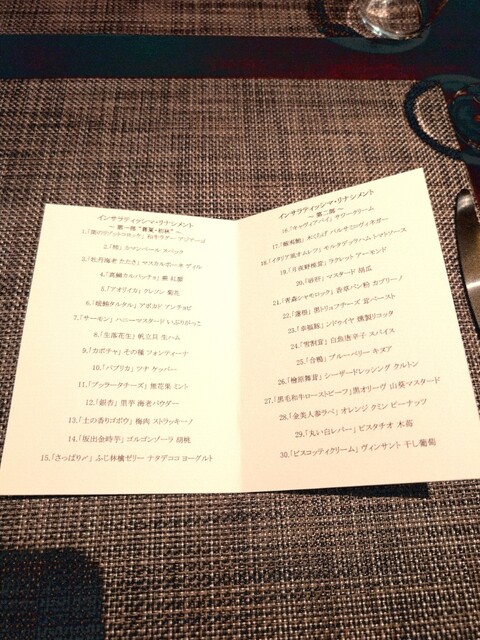 インサラティッシマ・リナシメント
～ 第一部 "晩夏・初秋" ～
1.「栗のリゾットコロッケ」 和牛ラグー アジアーゴ
2.「柿」 カマンベール スペック
3.「牡丹海老 たたき」 マスカルポーネ ディル
4.「真鯛カルパッチョ」 蕪 紅茶
5.「アオリイカ」 クレソン 菊花
6.「鮪タルタル」 アボカド アンチョビ
7.「サーモン」 ハニーマスタード いぶりがっこ
8.「生落花生」 帆立貝 生ハム
9.「カボチャ」 その種 フォンティーナ
10.「パプリカ」 ツナ ケッパー
11.「ブッラータチーズ」 無花果 ミント
12.「銀杏」 里芋 海老パウダー
13.「土の香りゴボウ」 梅肉 ストラッキーノ
14.「坂出金時芋」 ゴルゴンゾーラ 胡桃
15.「さっぱり〆」 ふじ林檎ゼリー ナタデココ ヨーグルト
インサラティッシマ・リナシメント
～ 第二部 ～
16.「キャヴィアパイ」 サワークリーム
17.「鰻」 水くらげ バルサミコヴィネガー
18.「イタリア風オムレツ」 モルタデッラハム トマトソース
19.「月夜野椎茸」 ラクレット アーモンド
20.「砂肝」 マスタード 胡瓜
21.「青森シャモロック」 香草パン粉 カプリーノ
22.「蓮根」 黒トリュフチーズ 茸ペースト
23.「幸福豚」 ンドゥイヤ 燻製リコッタ
24.「雪割茸」 白魚唐辛子 スパイス
25.「合鴨」 ブルーベリー キヌア
26.「檜原舞茸」 シーザードレッシング クルトン
27.「黒毛和牛ローストビーフ」 黒オリーヴ 山葵マスタード
28.「金美人参ラペ」 オレンジ クミン ピーナッツ
29.「丸い白レバー」 ピスタチオ 木苺
30.「ビスコッティクリーム」 ヴィンサント 干し葡萄